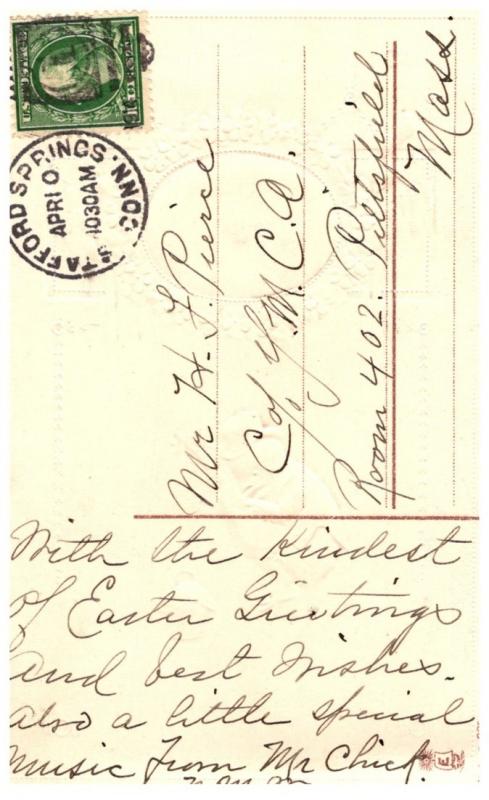 STAFFORD SPRINGS, CONN.
APR 10
1030AM
Mr H. F. Pierce
C/o Y.M.C.A.
Room 402. Pittsfield
Mass.
With the Kindest
of Easter Greetings
and best wishes.
also a little special
music from Mr Chick.